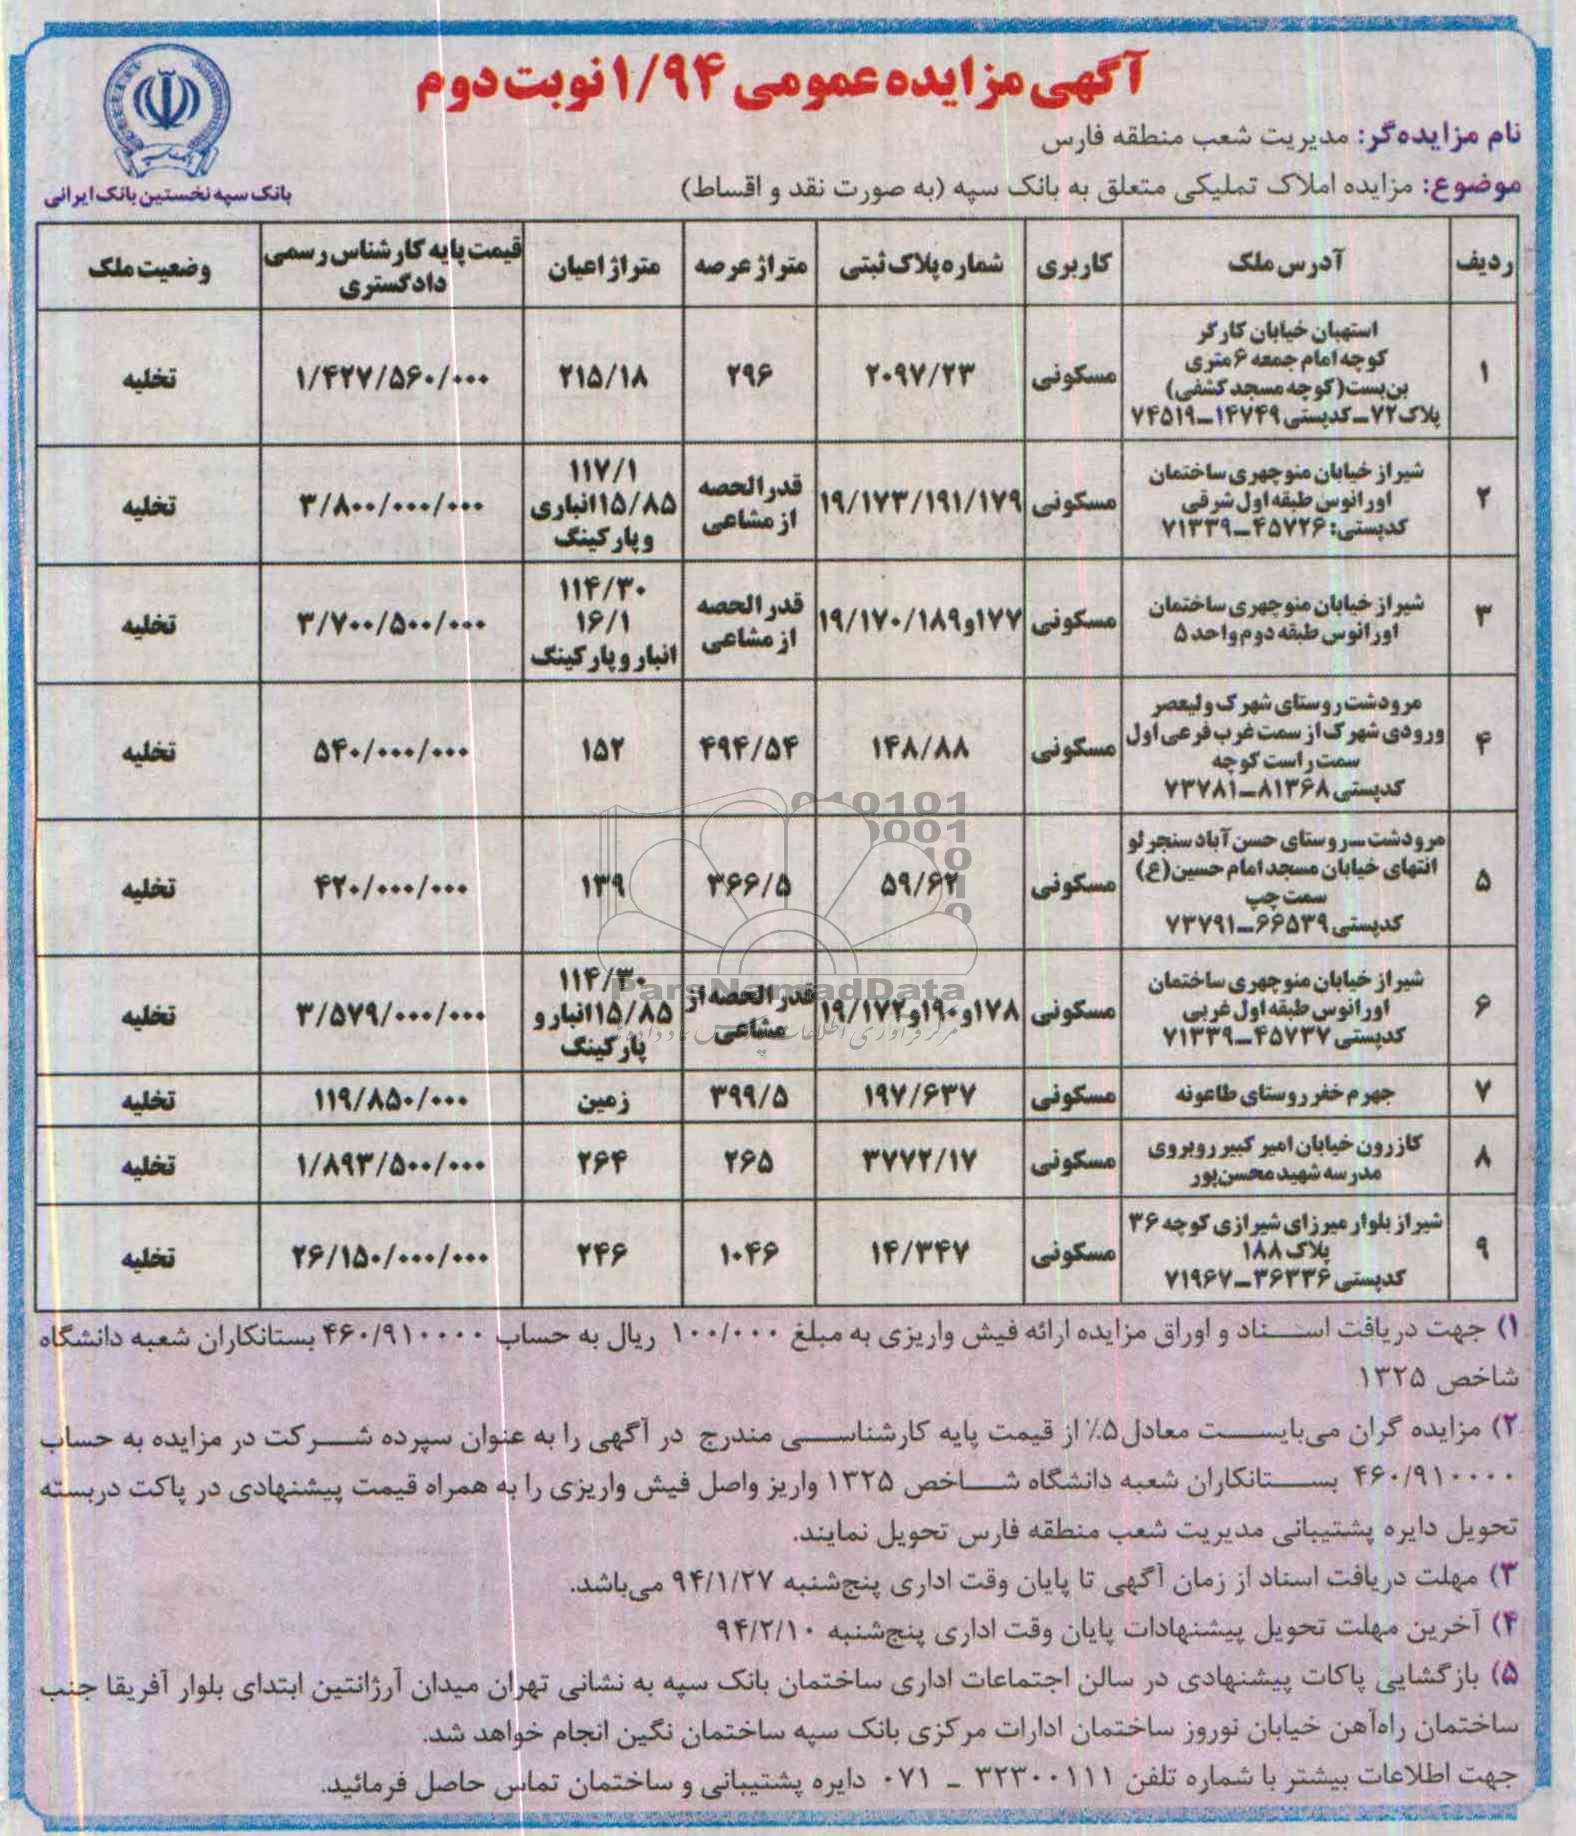 آگهی مزایده عمومی ۱/۹۴ نوبت دوم
بانک سپه نخستین بانک ایرانی
نام مزایده‌گر: مدیریت شعب منطقه فارس
موضوع: مزایده املاک تملیکی متعلق به بانک سپه (به صورت نقد و اقساط)
ردیف | آدرس ملک | کاربری | شماره پلاک ثبتی | متراژ عرصه | متراژ اعیان | قیمت پایه کارشناس رسمی دادگستری | وضعیت ملک
۱ | استهبان خیابان کارگر کوچه امام جمعه ۶ متری بن‌بست (کوچه مسجد کشفی) پلاک ۷۲ ـ کدپستی ۱۴۷۴۹ـ۷۴۵۱۹ | مسکونی | ۲۰۹۷/۲۳ | ۲۹۶ | ۲۱۵/۱۸ | ۱/۴۲۷/۵۶۰/۰۰۰ | تخلیه
۲ | شیراز خیابان منوچهری ساختمان اورانوس طبقه اول شرقی کدپستی: ۴۵۷۲۶ـ۷۱۳۳۹ | مسکونی | ۱۹/۱۷۳/۱۹۱/۱۷۹ | قدرالحصه از مشاعی | ۱۱۷/۱ ۱۵/۸۵ انباری و پارکینگ | ۳/۸۰۰/۰۰۰/۰۰۰ | تخلیه
۳ | شیراز خیابان منوچهری ساختمان اورانوس طبقه دوم واحد ۵ | مسکونی | ۱۷۷و۱۹/۱۷۰/۱۸۹ | قدر الحصه از مشاعی | ۱۱۴/۳۰ ۱۶/۱ انبار و پارکینگ | ۳/۷۰۰/۵۰۰/۰۰۰ | تخلیه
۴ | مرودشت روستای شهرک ولیعصر ورودی شهرک از سمت غرب فرعی اول سمت راست کوچه کدپستی ۸۱۳۶۸ـ۷۳۷۸۱ | مسکونی | ۱۴۸/۸۸ | ۴۹۴/۵۴ | ۱۵۲ | ۵۴۰/۰۰۰/۰۰۰ | تخلیه
۵ | مرودشت ـ روستای حسن آباد سنجرلو انتهای خیابان مسجد امام حسین (ع) سمت چپ کدپستی ۶۶۵۳۹ـ۷۳۷۹۱ | مسکونی | ۵۹/۶۲ | ۳۶۶/۵ | ۱۳۹ | ۴۲۰/۰۰۰/۰۰۰ | تخلیه
۶ | شیراز خیابان منوچهری ساختمان اورانوس طبقه اول غربی کدپستی ۴۵۷۳۷ـ۷۱۳۳۹ | مسکونی | ۱۷۸و۱۹۰و۱۹/۱۷۲ | قدر الحصه از مشاعی | ۱۱۴/۳۰ ۱۵/۸۵ انبار و پارکینگ | ۳/۵۷۹/۰۰۰/۰۰۰ | تخلیه
۷ | جهرم خفر روستای طاعونه | مسکونی | ۱۹۷/۶۳۷ | ۳۹۹/۵ | زمین | ۱۱۹/۸۵۰/۰۰۰ | تخلیه
۸ | کازرون خیابان امیر کبیر روبروی مدرسه شهید محسن‌پور | مسکونی | ۳۷۷۲/۱۷ | ۲۶۵ | ۲۶۴ | ۱/۸۹۳/۵۰۰/۰۰۰ | تخلیه
۹ | شیراز بلوار میرزای شیرازی کوچه ۳۶ پلاک ۱۸۸ کدپستی ۳۶۳۳۶ـ۷۱۹۶۷ | مسکونی | ۱۴/۳۴۷ | ۱۰۴۶ | ۲۴۶ | ۲۶/۱۵۰/۰۰۰/۰۰۰ | تخلیه
ParsNamadData
۱) جهت دریافت اسناد و اوراق مزایده ارائه فیش واریزی به مبلغ ۱۰۰/۰۰۰ ریال به حساب ۴۶۰/۹۱۰۰۰۰ بستانکاران شعبه دانشگاه
شاخص ۱۳۲۵
۲) مزایده گران می‌بایست معادل ۵٪ از قیمت پایه کارشناسی مندرج در آگهی را به عنوان سپرده شرکت در مزایده به حساب
۴۶۰/۹۱۰۰۰۰ بستانکاران شعبه دانشگاه شاخص ۱۳۲۵ واریز واصل فیش واریزی را به همراه قیمت پیشنهادی در پاکت دربسته
تحویل دایره پشتیبانی مدیریت شعب منطقه فارس تحویل نمایند.
۳) مهلت دریافت اسناد از زمان آگهی تا پایان وقت اداری پنج‌شنبه ۹۴/۱/۲۷ می‌باشد.
۴) آخرین مهلت تحویل پیشنهادات پایان وقت اداری پنج‌شنبه ۹۴/۲/۱۰
۵) بازگشایی پاکات پیشنهادی در سالن اجتماعات اداری ساختمان بانک سپه به نشانی تهران میدان آرژانتین ابتدای بلوار آفریقا جنب
ساختمان راه‌آهن خیابان نوروز ساختمان ادارات مرکزی بانک سپه ساختمان نگین انجام خواهد شد.
جهت اطلاعات بیشتر با شماره تلفن ۳۲۳۰۰۱۱۱ ـ ۰۷۱ دایره پشتیبانی و ساختمان تماس حاصل فرمائید.